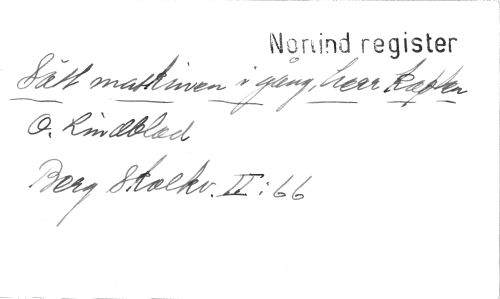 Norlind register
Sätt maskinen i gång, herr kapten
O. Lindblad
Berg Skolkv. II : 66